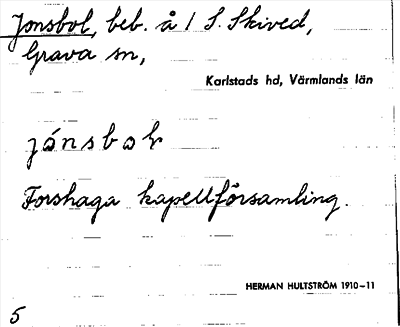 Jonsbol, beb. å 1 S. Skived,
Grava sn,
Karlstads hd, Värmlands län
jónsbol
Forshaga kapellförsamling.
HERMAN HULTSTRÖM 1910-11
5